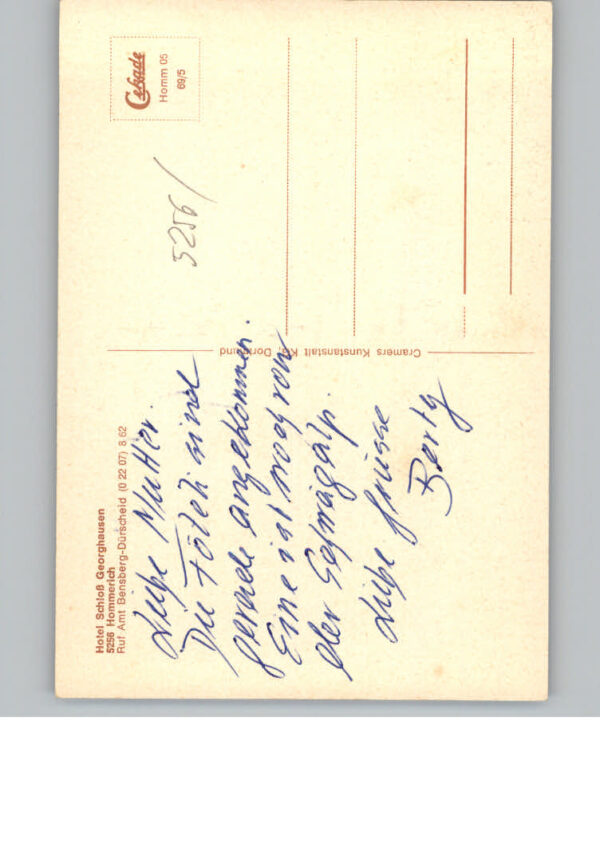 Hotel Schloß Georghausen
5256 Hommerich
Ruf Amt Bensberg-Dürscheid (0 22 07) 8 62
Liebe Mutter.
Die Föteli sind
gerade angekommen.
Eine ist noch von
der Schrägalp.
Liebe Grüsse
Berty
Cramers Kunstanstalt KG Dortmund
5256/
Cekade
Homm 05
69/5